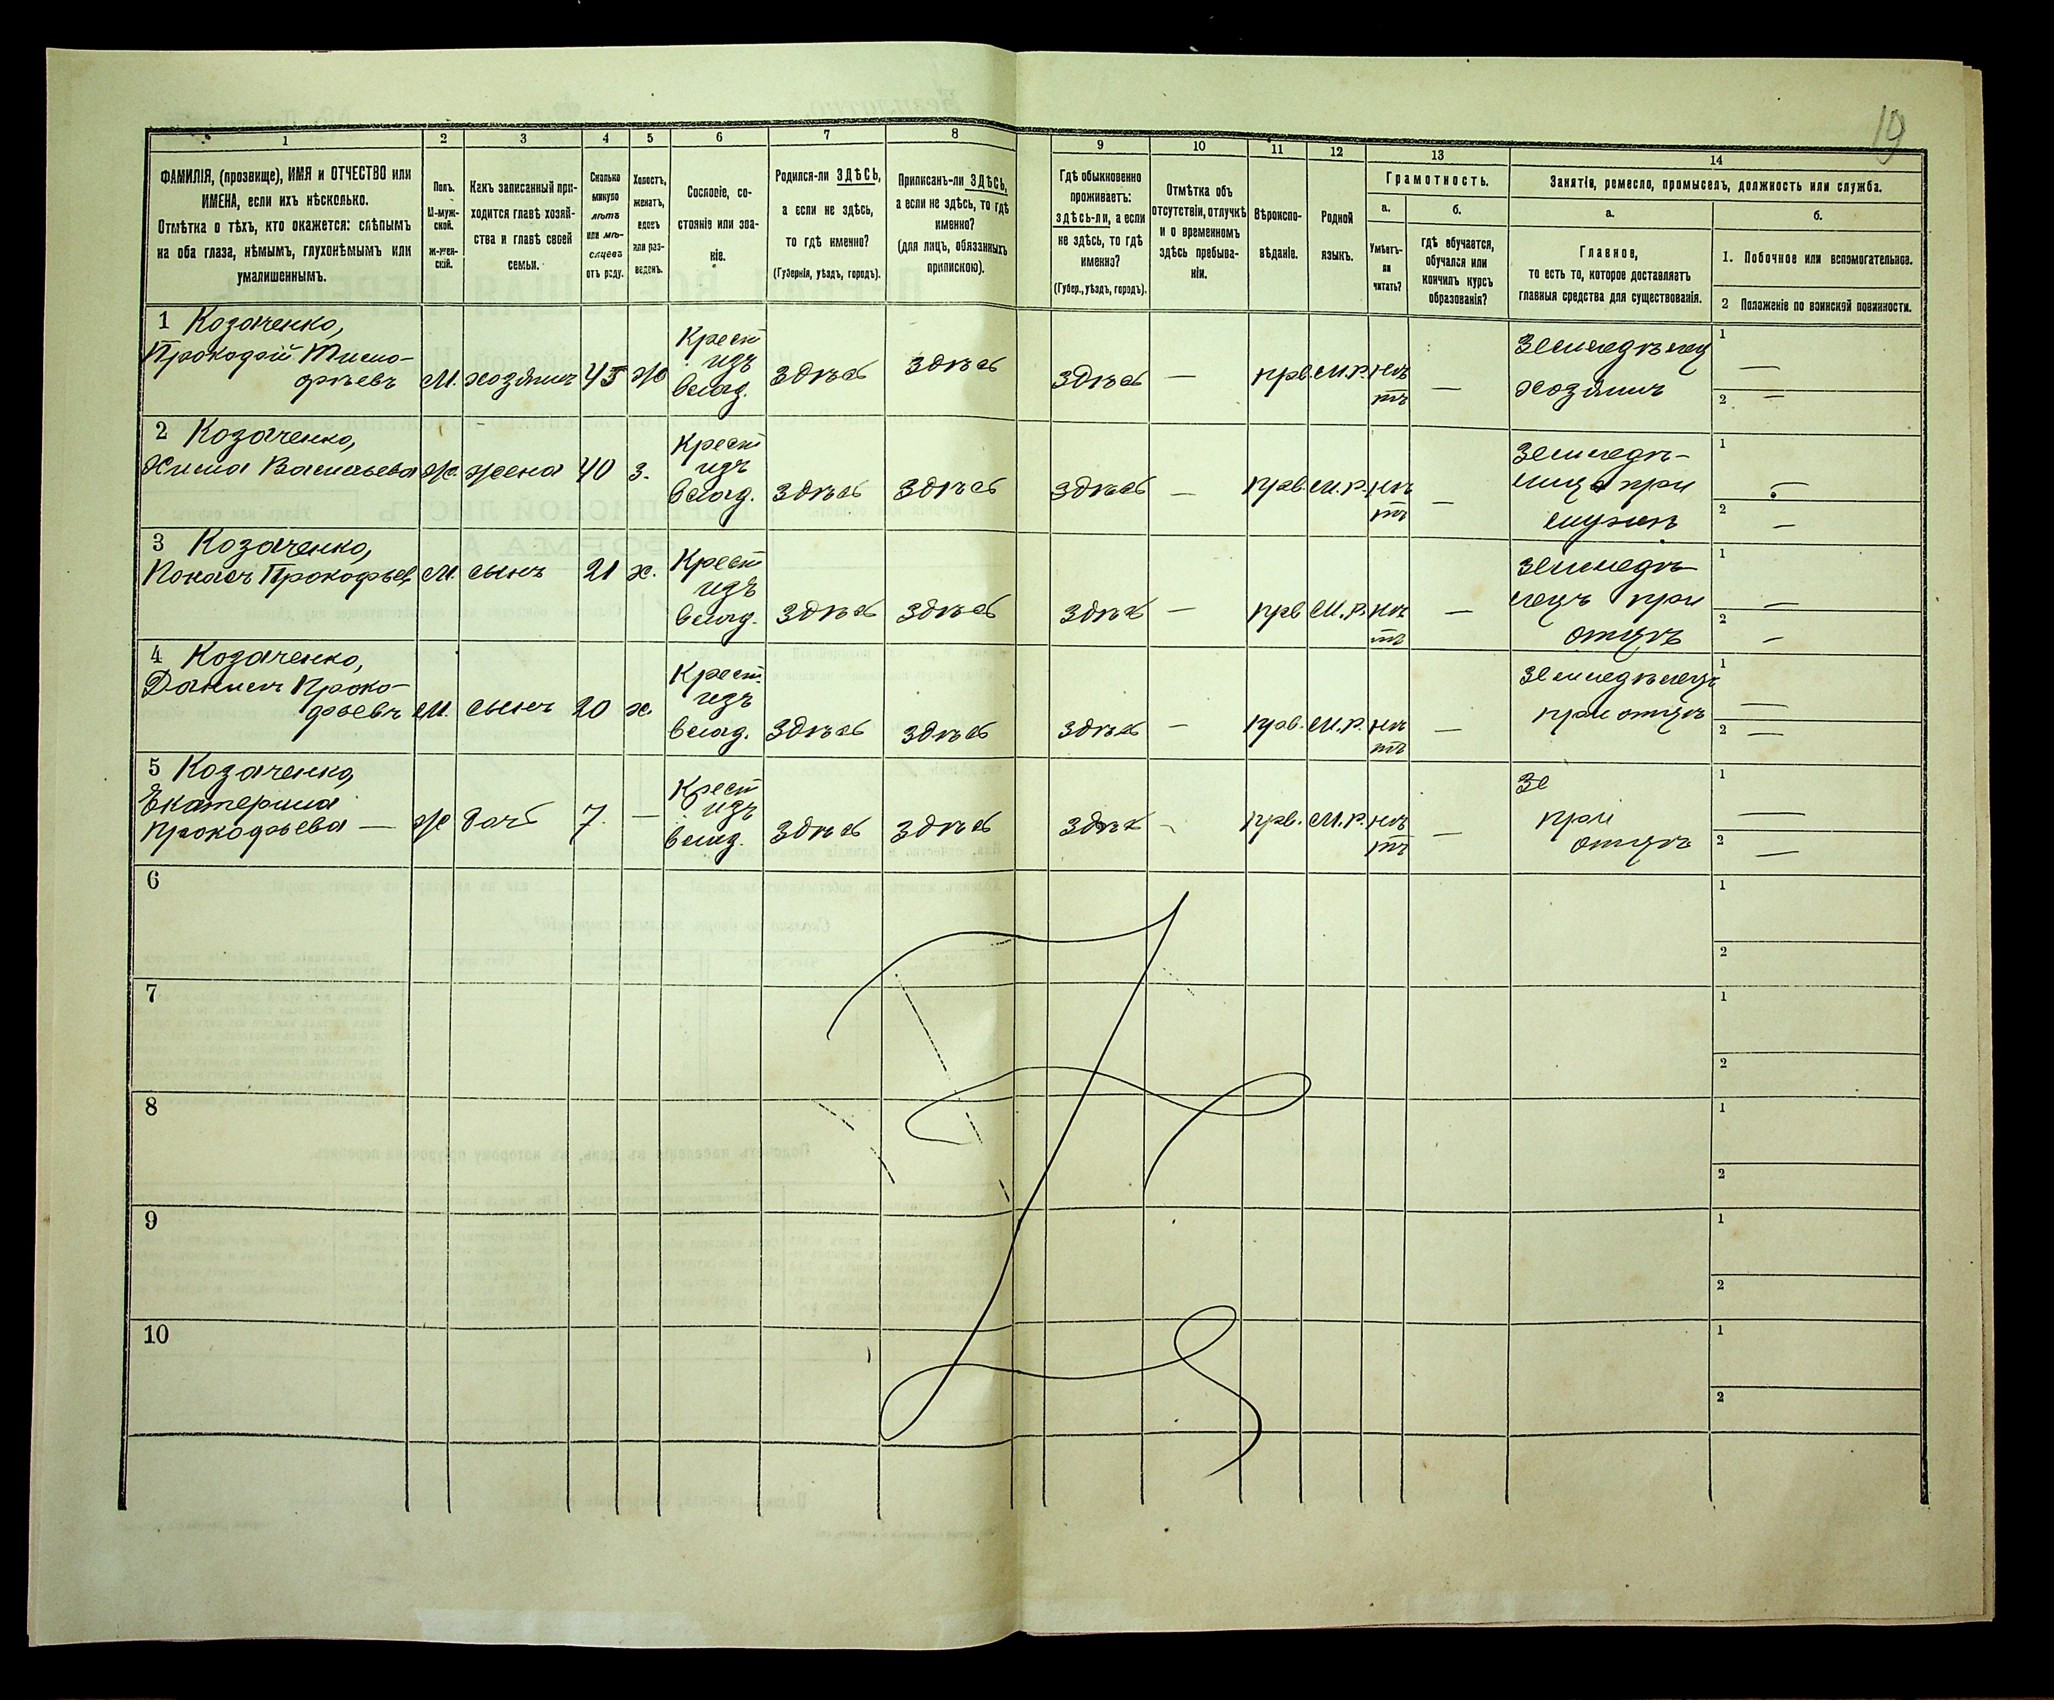 19
1
2
3
4
5
6
7
8
9
10
11
12
13
14
ФАМИЛІЯ, (прозвище), ИМЯ и ОТЧЕСТВО или
ИМЕНА, если ихъ нѣсколько.
Отмѣтка о тѣхъ, кто окажется: слѣпымъ
на оба глаза, нѣмымъ, глухонѣмымъ или
умалишеннымъ.
Полъ.
М-муж-
ской.
Ж-жен-
скій.
Какъ записанный при-
ходится главѣ хозяй-
ства и главѣ своей
семьи.
Сколько
минуло
лѣтъ
или мѣ-
сяцевъ
отъ роду.
Холостъ,
женатъ,
вдовъ
или раз-
веденъ.
Сословіе, со-
стояніе или зва-
ніе.
Родился-ли ЗДѢСЬ,
а если не здѣсь,
то гдѣ именно?
(Губернія, уѣздъ, городъ).
Приписанъ-ли ЗДѢСЬ,
а если не здѣсь, то гдѣ
именно?
(для лицъ, обязанныхъ
припискою).
Гдѣ обыкновенно
проживаетъ:
здѣсь-ли, а если
не здѣсь, то гдѣ
именно?
(Губер., уѣздъ, городъ).
Отмѣтка объ
отсутствіи, отлучкѣ
и о временномъ
здѣсь пребыва-
ніи.
Вѣроиспо-
вѣданіе.
Родной
языкъ.
Грамотность.
а.
Умѣетъ-
ли
читать?
б.
гдѣ обучается,
обучался или
кончилъ курсъ
образованія?
Занятія, ремесло, промыселъ, должность или служба.
а.
Главное,
то есть то, которое доставляетъ
главныя средства для существованія.
б.
1. Побочное или вспомогательное.
2 Положеніе по воинской повинности.
1 Козаченко,
Прокофій Тимо-
фѣевъ
М. хозяинъ 45 ж
Крест
изъ
влад.
здѣсь здѣсь здѣсь — прв. М.р. нѣ
тъ —
Земледѣлец
хозяинъ
1 —
2 —
2 Козаченко,
Химa Васильева ж. жена 40 з.
Крест
изъ
влад. здѣсь здѣсь здѣсь — прав. М.р. нѣ
тъ —
Земледѣ-
лица при
мужѣ
1 —
2 —
3 Козаченко,
Панасъ Прокофьев М. сынъ 21 х.
Крест
изъ
влад. здѣсь здѣсь здѣсь — прв М.р. нѣ
тъ —
Земледѣ-
лецъ при
отцѣ
1 —
2 —
4 Козаченко,
Данило Проко-
фьевъ М. сынъ 20 х.
Крест.
изъ
влад. здѣсь здѣсь здѣсь — прав. М.р. нѣ
тъ —
Земледѣлецъ
при отцѣ
1 —
2 —
5 Козаченко,
Екатерина
Прокофьева — ж дочь 7. —
Крест
изъ
влад. здѣсь здѣсь здѣсь — прв. М.р. нѣ
тъ —
Зе
при
отцѣ
1 —
2 —
6
1
2
7
1
2
8
1
2
9
1
2
10
1
2